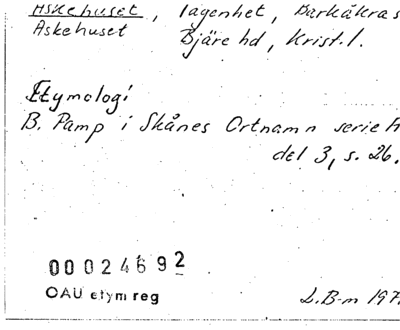 Askehuset, lägenhet, Barkåkra s
Askehuset Bjäre hd, Krist. l.
Etymologi
B. Pamp i Skånes Ortnamn serie A
del 3, s. 26.
00024692
OAU etym reg
L.B-m 197.